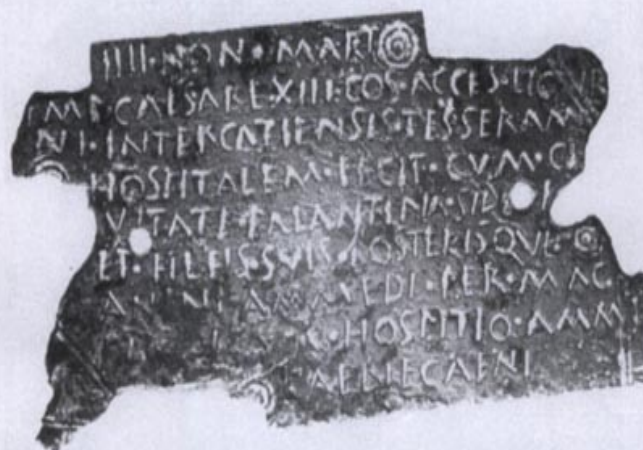 IIII·NON·MART
IMP·CAESARE·XIII·COS·ACCES·LICIR
NI·INTERCATIENSIS·TESSERAM
HOSPITALEM·FECIT·CVM·CI
VITATE·PALANTINA·SIBI
ET·FILIIS·SVIS·POSTERISQVE
AMMEDI·PER·MAG
HOSPITIO·AMM
CAENECAENI